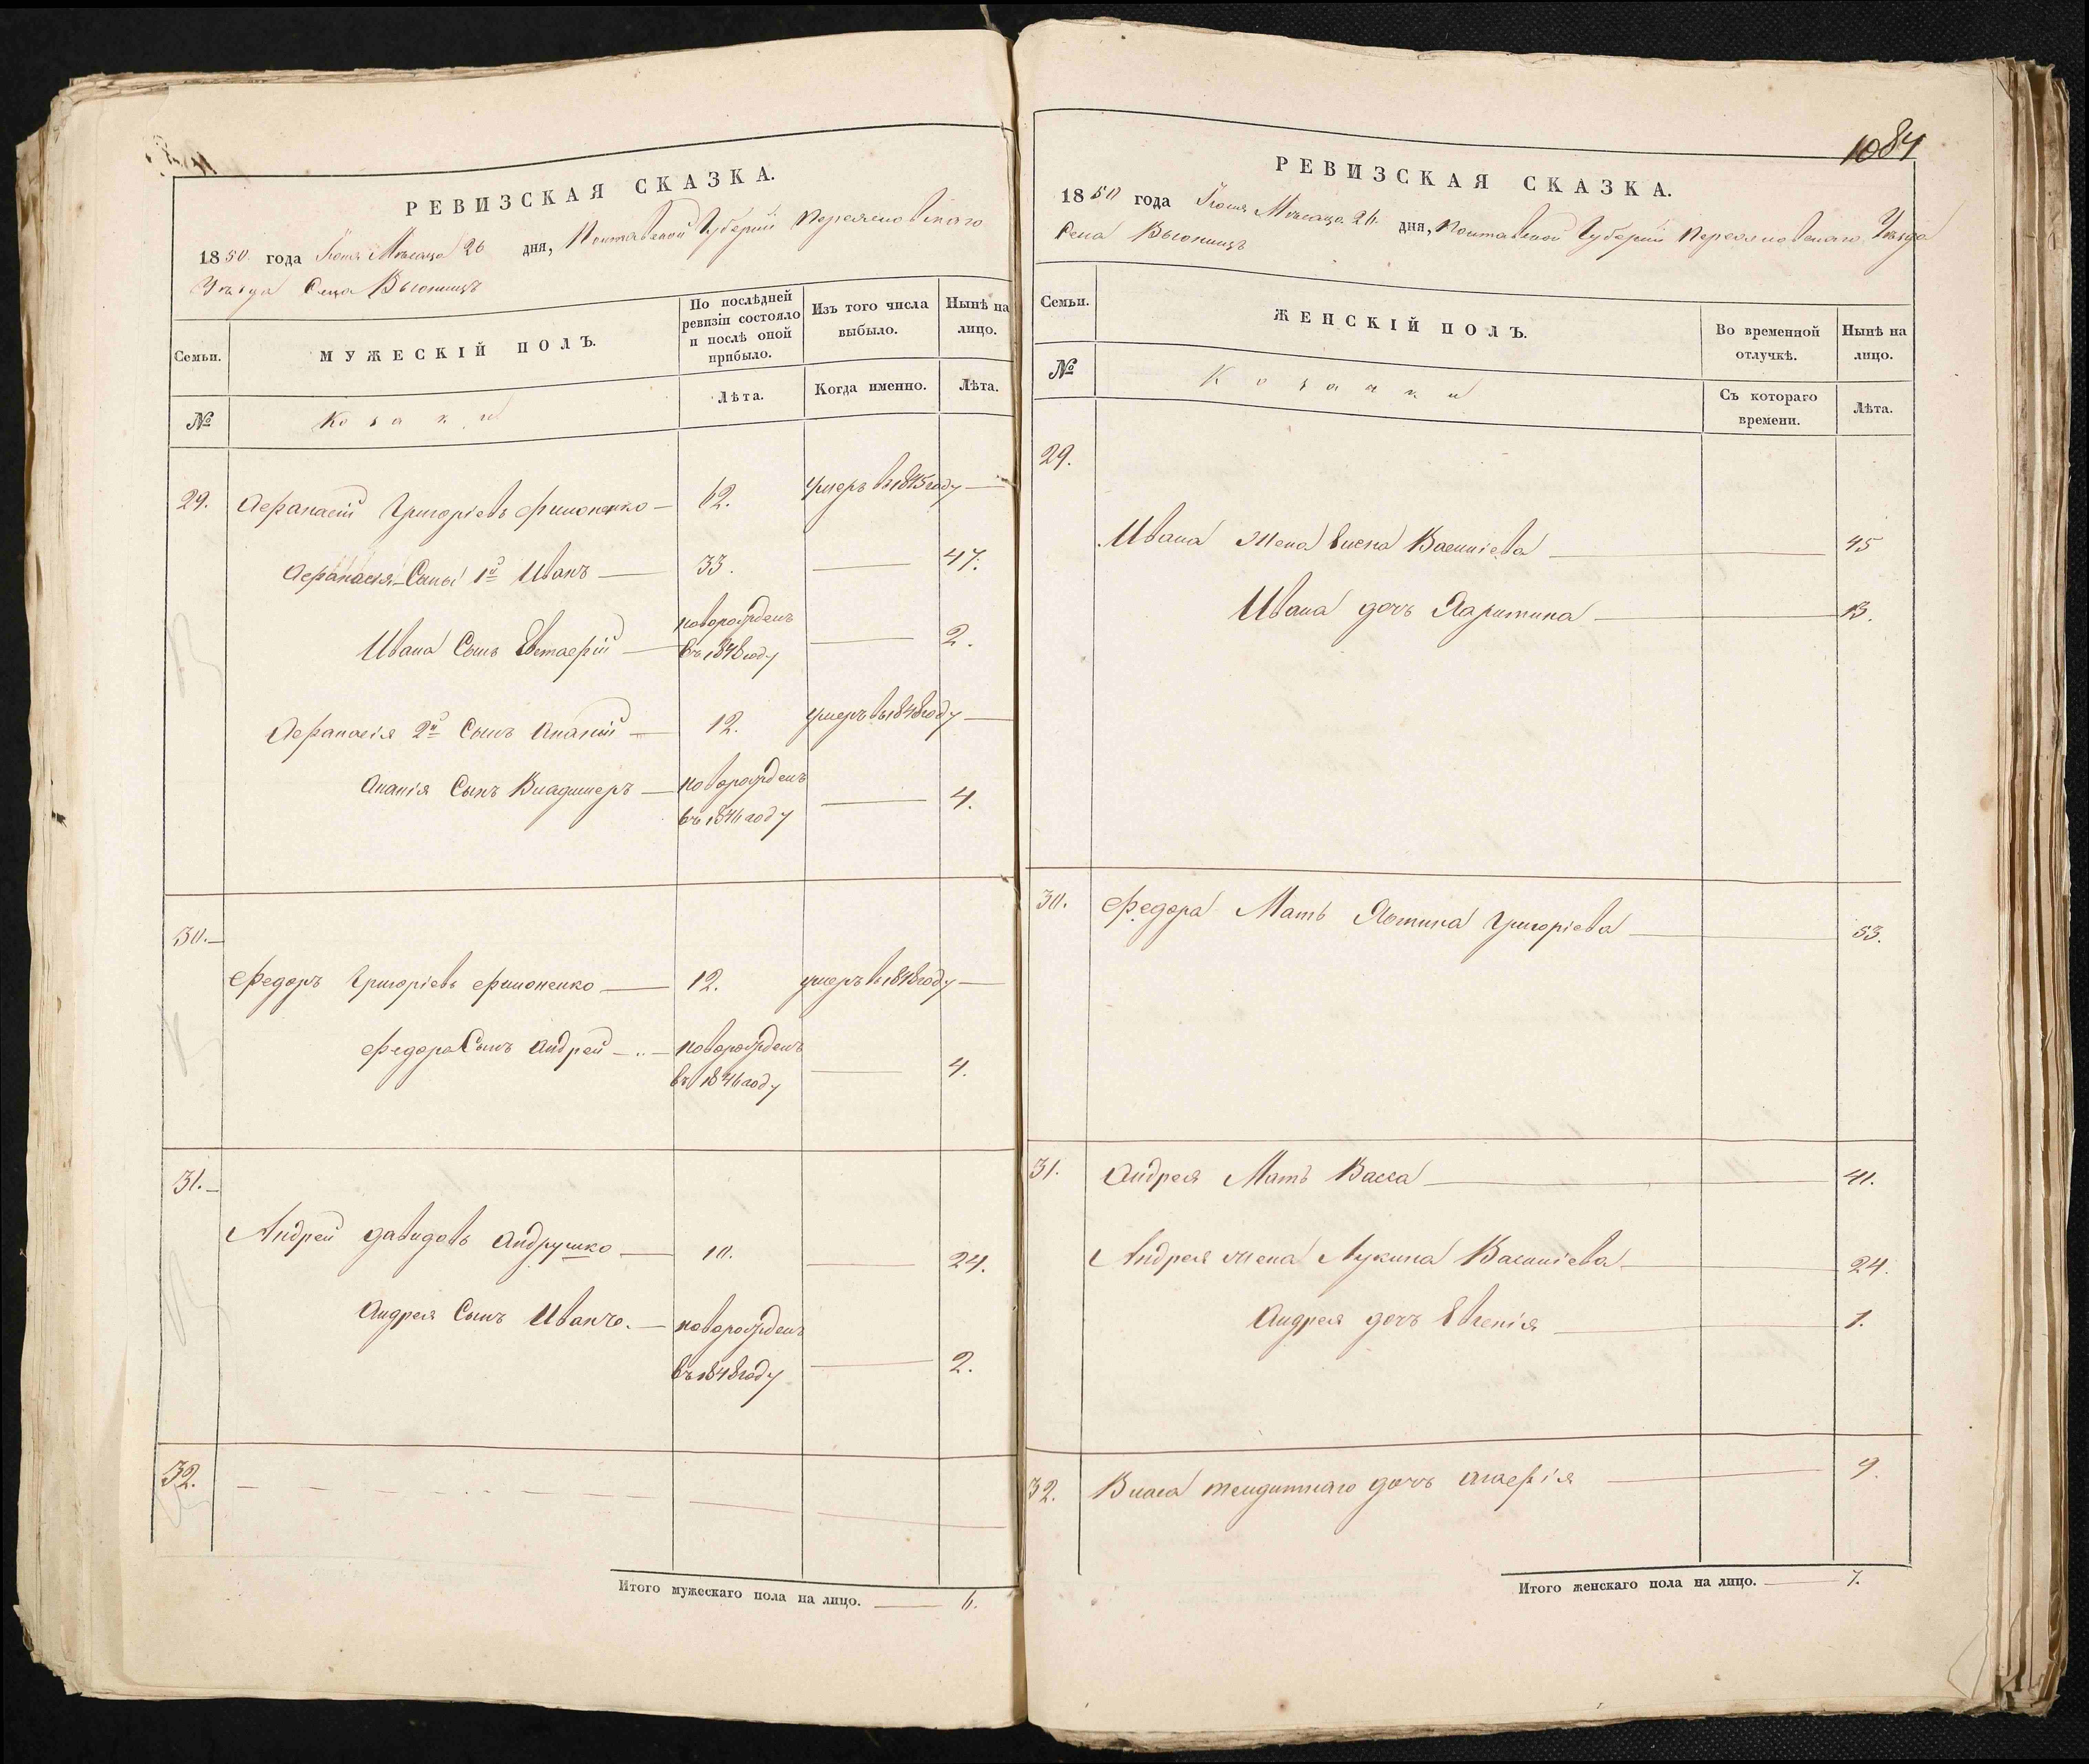 РЕВИЗСКАЯ СКАЗКА.
1850 года Іюня Мѣсяца 26 дня, Полтавской Губерніи Переяславскаго
Уѣзда Села Вьюнищъ
Семьи.
МУЖЕСКІЙ ПОЛЪ.
По послѣдней ревизіи состояло и послѣ оной прибыло.
Изъ того числа выбыло.
Нынѣ на лицо.
№
Козаки
Лѣта.
Когда именно.
Лѣта.
29. Афанасій Григоріевъ Филоненко — 62. умеръ въ 1845 году —
Афанасія Сыны 1й Иванъ — 33. — 47.
Ивана Сынъ Евстафій — новорожденъ въ 1848 году — 2.
Афанасія 2й Сынъ Ананій — 12. умеръ въ 1848 году —
Ананія Сынъ Владимеръ — новорожденъ въ 1846 году — 4.
30. —
Федоръ Григоріевъ Филоненко — 12. умеръ въ 1848 году —
Федора Сынъ Андрей — новорожденъ въ 1846 году — 4.
31. —
Андрей Давидовъ Андрушко — 10. — 24.
Андрея Сынъ Иванъ. — новорожденъ въ 1848 году — 2.
32.
Итого мужескаго пола на лицо. — 6.
1084
РЕВИЗСКАЯ СКАЗКА.
1850 года Іюня Мѣсяца 26 дня, Полтавской Губерніи Переяславскаго Уѣзда
Села Вьюнищъ
Семьи.
ЖЕНСКІЙ ПОЛЪ.
Во временной отлучкѣ.
Нынѣ на лицо.
№
Козачки
Съ котораго времени.
Лѣта.
29.
Ивана Жена Елена Василіева — 45
Ивана дочь Харитина — 13.
30. Федора Мать Хотина Григоріева — 53.
31. Андрея Мать Васса — 41.
Андрея жена Лукина Василіева — 24.
Андрея дочь Евгенія — 1.
32. Власа дочь Агафія — 9.
Итого женскаго пола на лицо. — 7.